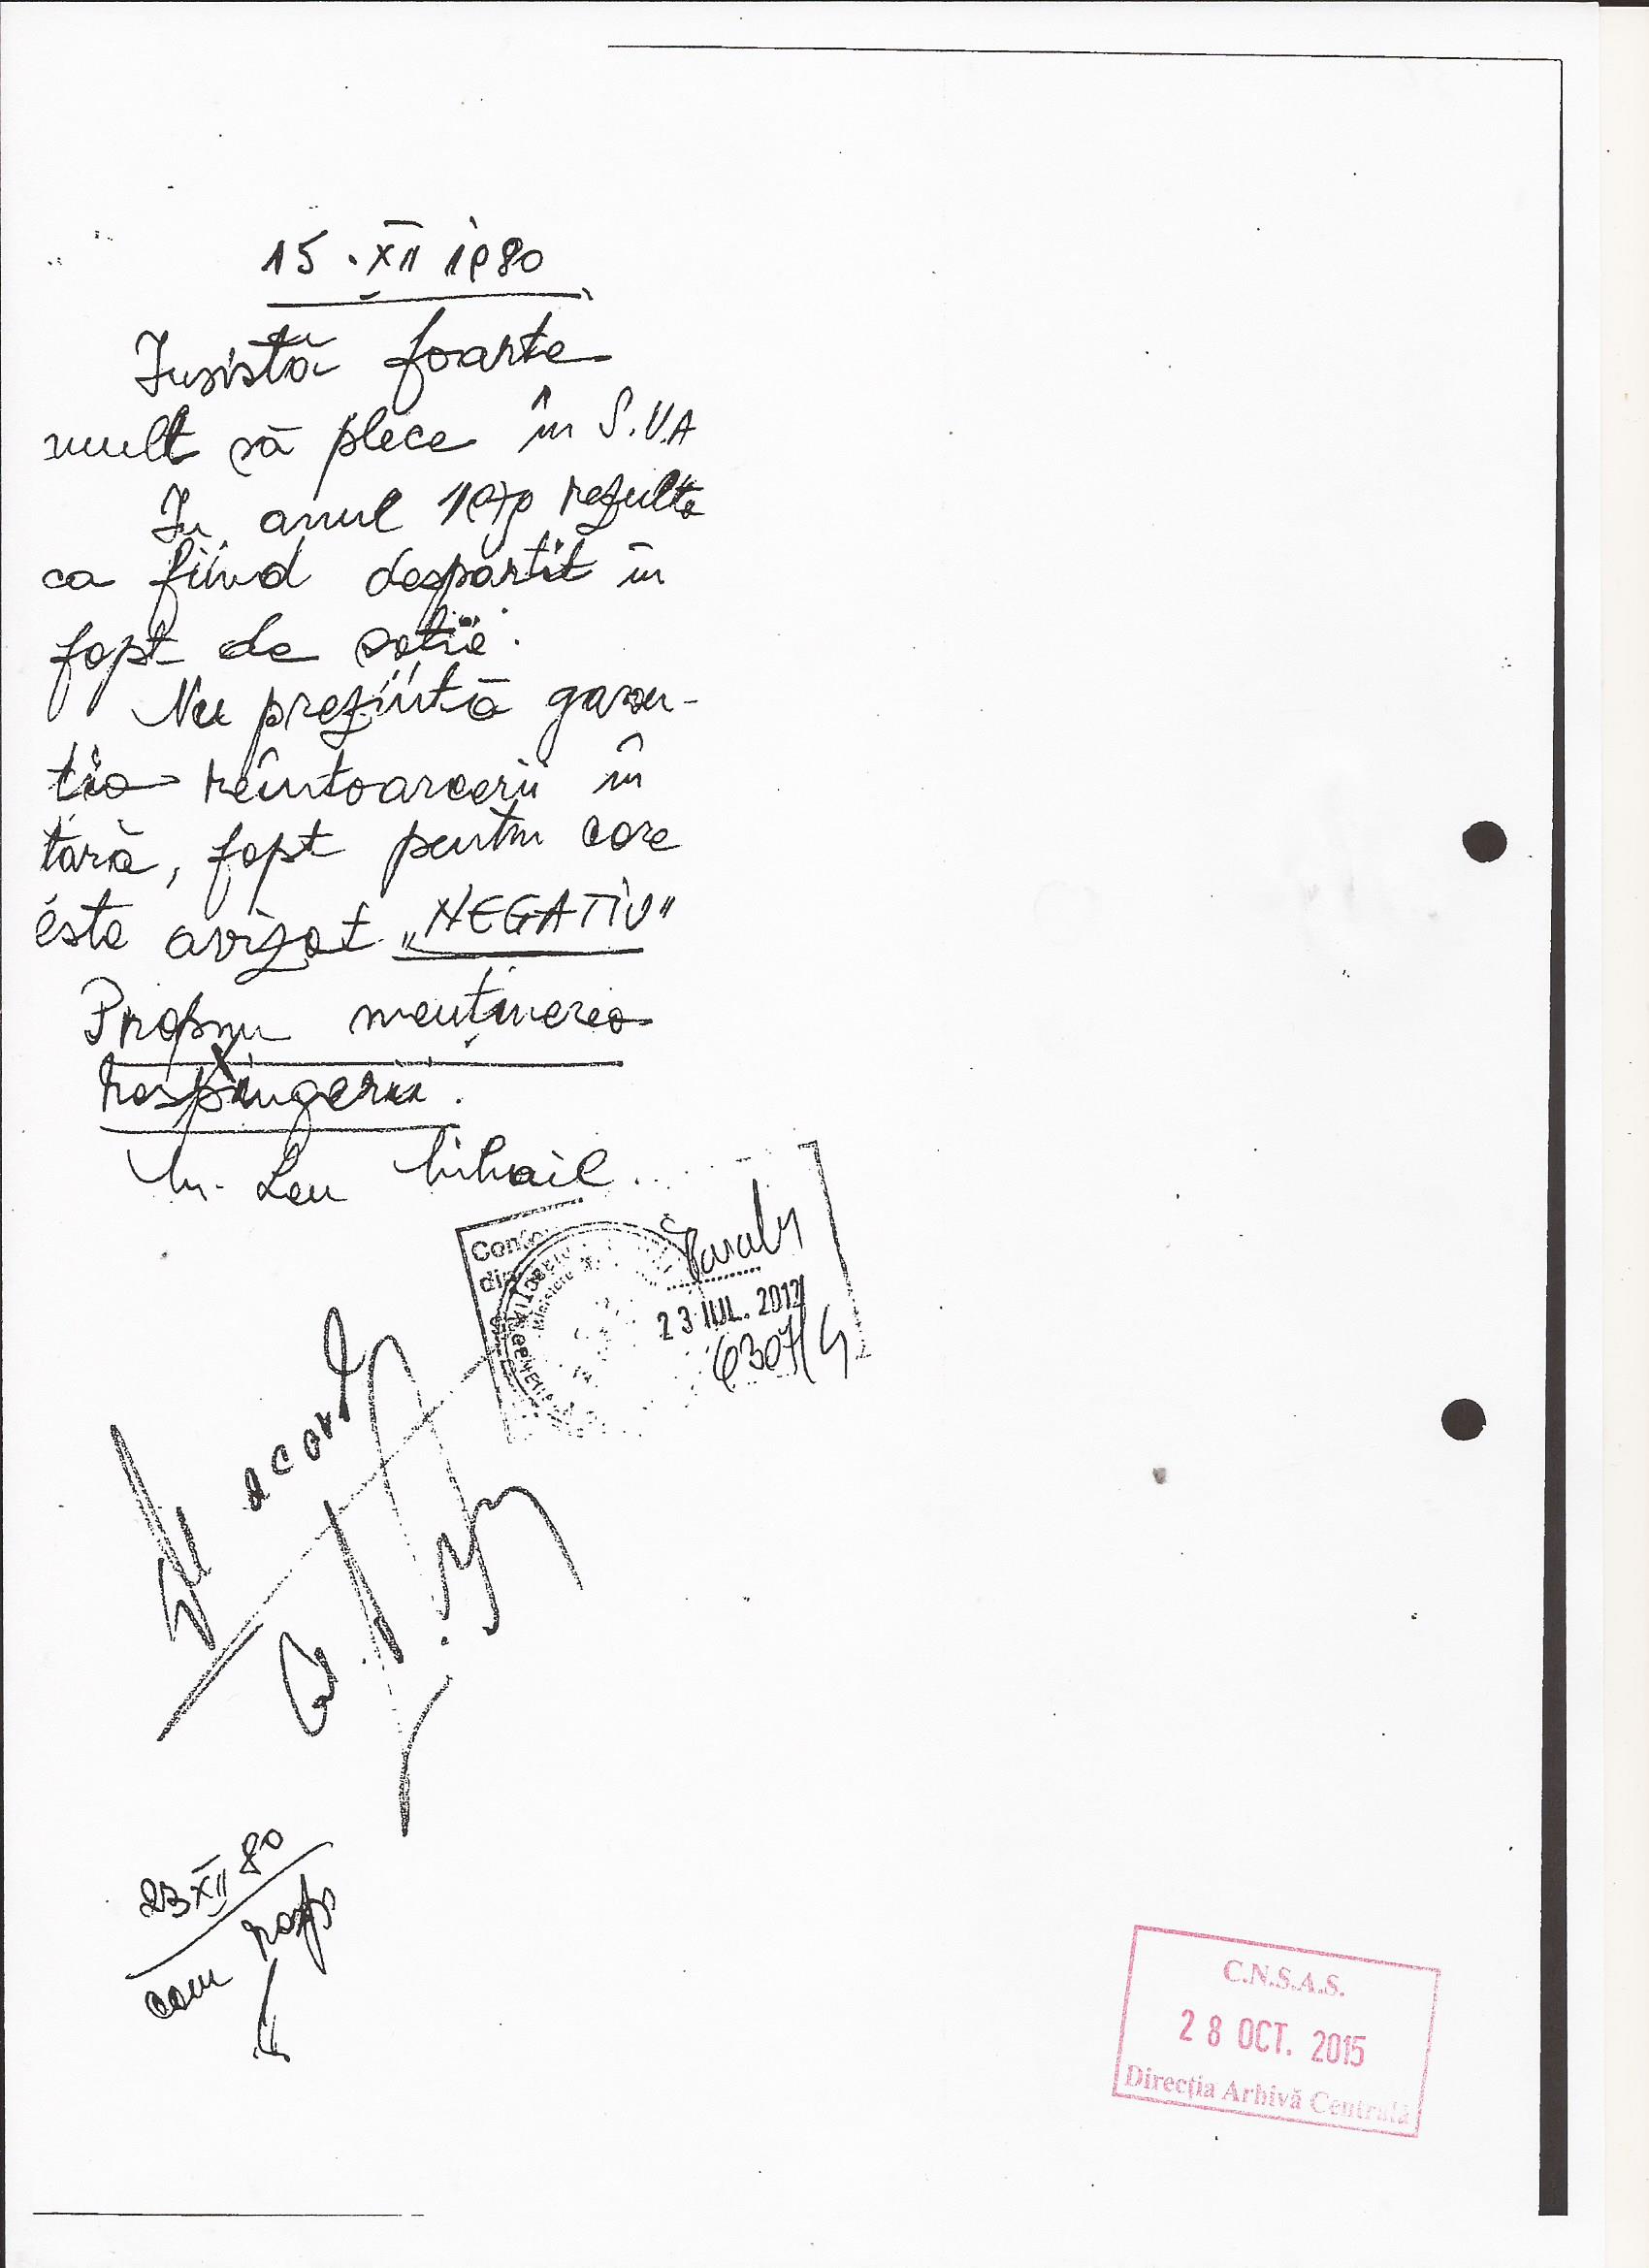 15.XII 1980
Insistă foarte
mult să plece în S.U.A
In anul 1979 rezulta
ca fiind despartit in
fapt de soție.
Nu prezintă garan-
tia reîntoarcerii în
țară, fapt pentru care
este avizat „NEGATIV"
Propun menținerea
respingerii.
Leu Mihail
Conf
din
23 IUL. 2012
6307/4
de acord
23 XII 80
com resp
C.N.S.A.S.
28 OCT. 2015
Direcția Arhivă Centrală